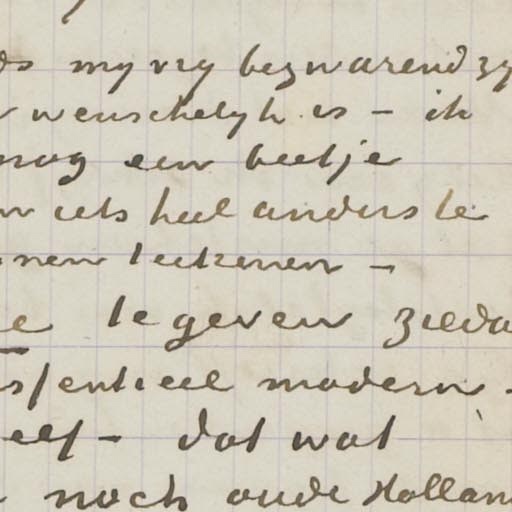 ds my vry bezwarend zy
wenschelyk is – ik
nog een beetje
iets heel anders te
nen teekenen –
e te geven zieda
essentieel modern –
elf – dat wat
noch oude Hollan